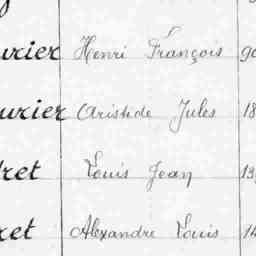 urier Henri François
urier Aristide Jules 18
ret Louis Jean 13
ret Alexandre Louis 14